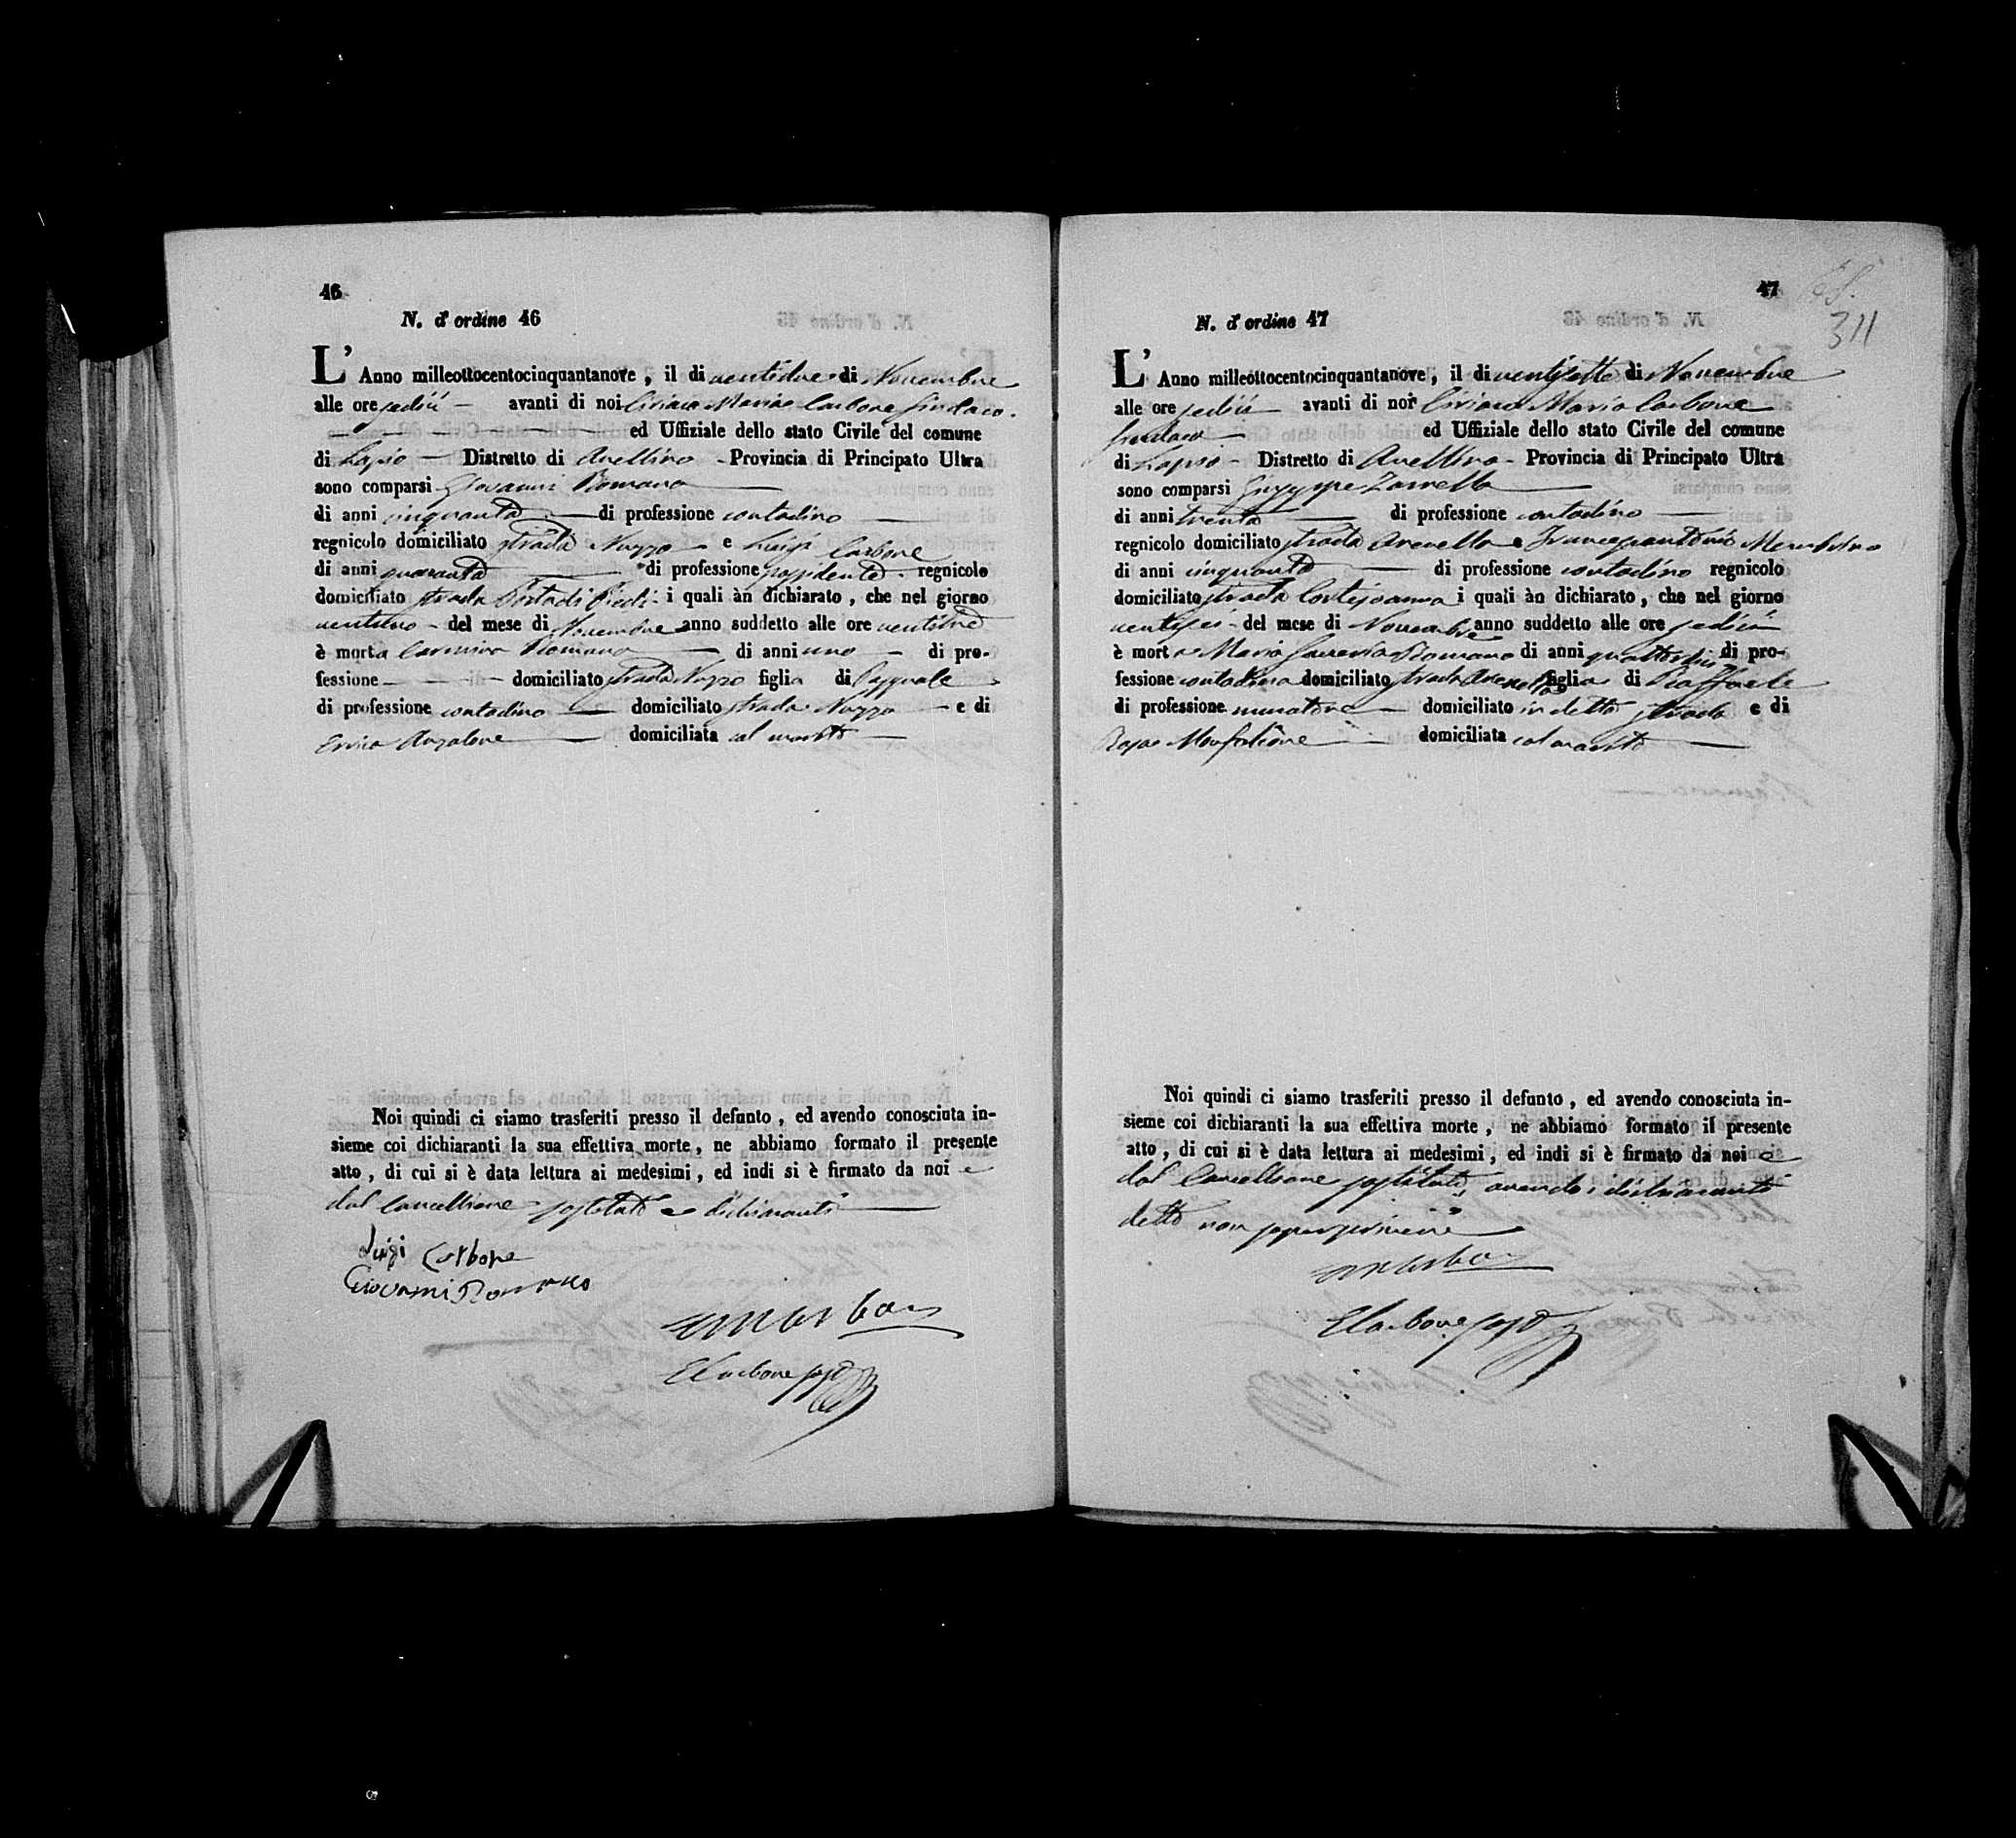 46
N. d'ordine 46
L'Anno milleottocentocinquantanove, il dì ventidue di Novembre
alle ore sedici avanti di noi Ciriaco Maria Carbone Sindaco
ed Uffiziale dello stato Civile del comune
di Lapio Distretto di Avellino Provincia di Principato Ultra
sono comparsi Giovanni Romano
di anni cinquanta di professione contadino
regnicolo domiciliato strada Nuzzo e Luigi Carbone
di anni quaranta di professione possidente regnicolo
domiciliato strada Porta di i quali àn dichiarato, che nel giorno
ventuno del mese di Novembre anno suddetto alle ore
è morta Carmina Romano di anni uno di pro-
fessione domiciliato strada Nuzzo figlia di Pasquale
di professione contadino domiciliato strada Nuzzo e di
Anzalone domiciliata col marito
Noi quindi ci siamo trasferiti presso il defunto, ed avendo conosciuta in-
sieme coi dichiaranti la sua effettiva morte, ne abbiamo formato il presente
atto, di cui si è data lettura ai medesimi, ed indi si è firmato da noi e
dal Cancelliere sostituto e dichiaranti
Luigi Carbone
Giovanni Romano
Carbone sost
47
311
N. d'ordine 47
L'Anno milleottocentocinquantanove, il dì ventisette di Novembre
alle ore sedici avanti di noi Ciriaco Maria Carbone
Sindaco ed Uffiziale dello stato Civile del comune
di Lapio Distretto di Avellino Provincia di Principato Ultra
sono comparsi Giuseppe Zarrella
di anni trenta di professione contadino
regnicolo domiciliato strada Arenella e Francescantonio
di anni cinquanta di professione contadino regnicolo
domiciliato strada i quali àn dichiarato, che nel giorno
ventisei del mese di Novembre anno suddetto alle ore sedici
è morta Maria Saveria Romano di anni quattordici di pro-
fessione contadina domiciliato strada Arenella figlia di Raffaele
di professione muratore domiciliato in detta strada e di
Rosa Monfortione domiciliata col marito
Noi quindi ci siamo trasferiti presso il defunto, ed avendo conosciuta in-
sieme coi dichiaranti la sua effettiva morte, ne abbiamo formato il presente
atto, di cui si è data lettura ai medesimi, ed indi si è firmato da noi e
dal Cancelliere sostituto, avendo i dichiaranti
detto non saper scrivere
Carbone sost